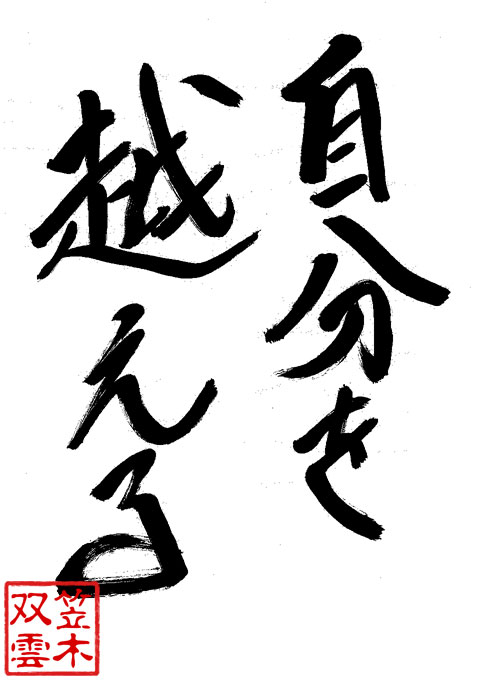 自分を
越える
笠木
双雲